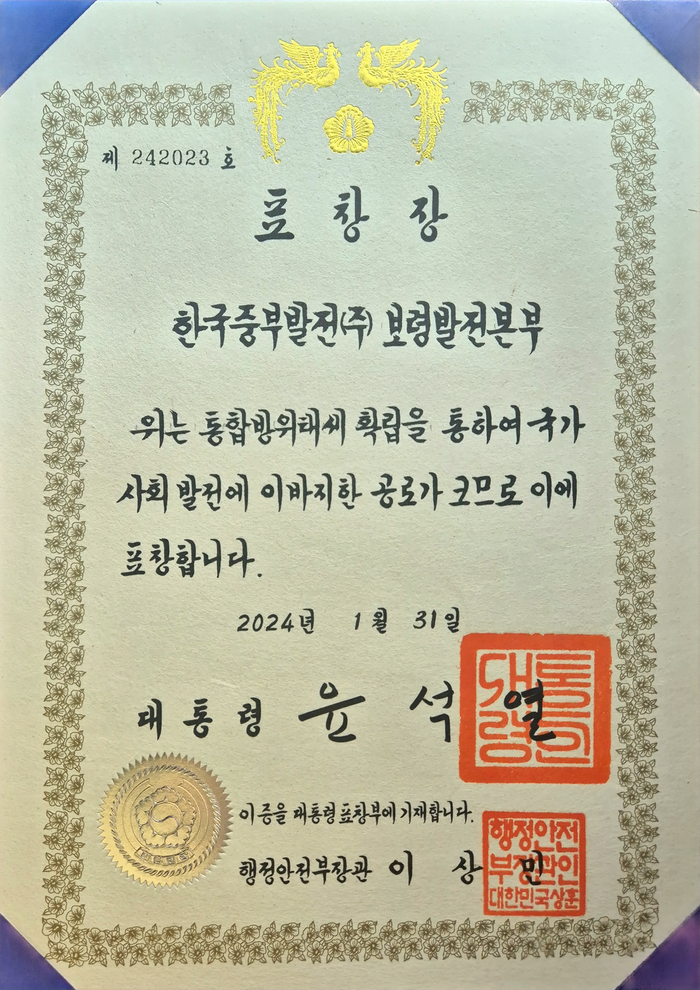 제 242023 호
표 창 장
한국중부발전(주) 보령발전본부
위는 통합방위태세 확립을 통하여 국가
사회 발전에 이바지한 공로가 크므로 이에
표창합니다.
2024년 1월 31일
대 통 령 윤 석 열
이 증을 대통령표창부에 기재합니다.
행정안전부장관 이 상 민
행정안전
부장관인
대한민국상훈